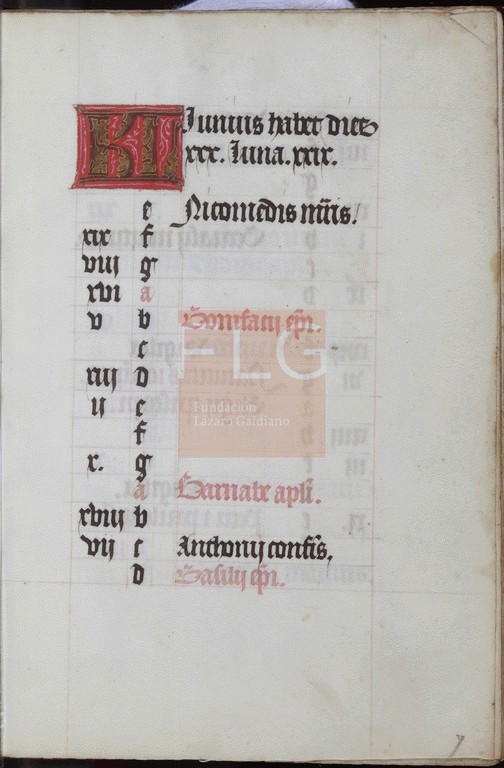 KL Junius habet dies
xxx. Luna. xxix.
e Nicomedis mr̄is.
xix f
viii g
xvi a
v b Bonifacij ep̄i.
c
xiii d
ii e
f
x. g
a Barnabe apli.
xviii b
vii c Anthonij confes̄.
d Basilij ep̄i.
FLG
Fundación
Lázaro Galdiano
7